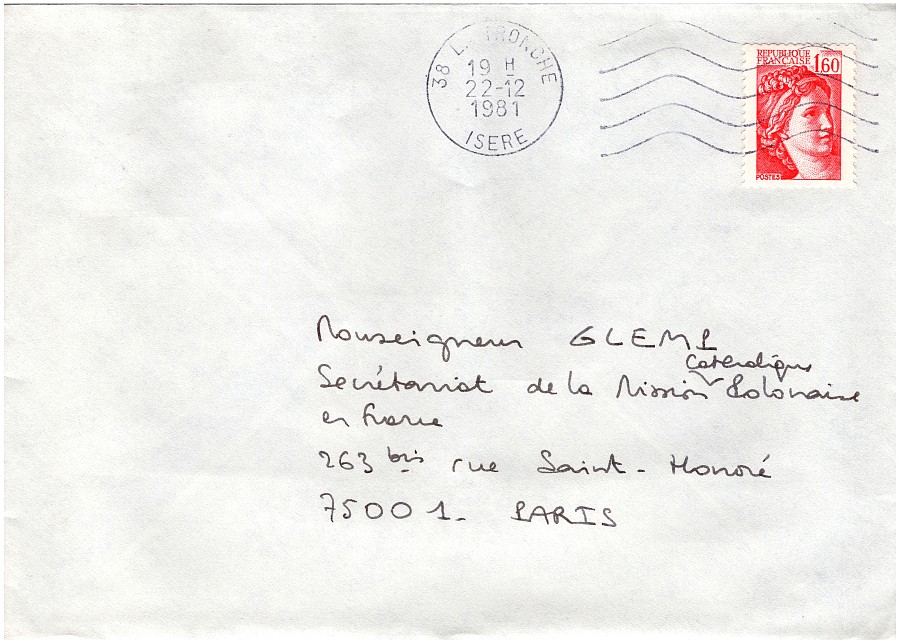 38 LA TRONCHE
19 H
22-12
1981
ISERE
REPUBLIQUE
FRANÇAISE 1,60
POSTES
Monseigneur GLEMP
Catholique
Secrétariat de la Mission Polonaise
en France
263 bis rue Saint-Honoré
75001- PARIS